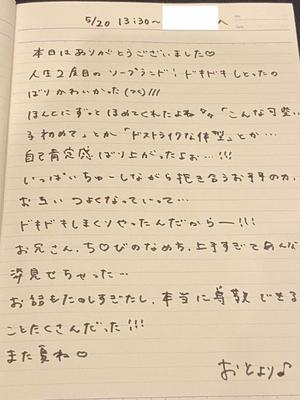 5/20 13:30〜 へ
本日はありがとうございました♡
人生2度目のソープランド! ドキドキしとったの
ばりかわいかった(つд)!!!
ほんとにずっとほめてくれたよね 「こんな可愛い
る初めて」とか「ドストライクな体型」とか…
自己肯定感ばり上がったよぉ…!!!
いっぱいちゅーしながら抱き合うお手の力、
お互いつよくなっていって…
ドキドキしまくりやったんだからー!!!
お兄さん、ち♡びのなめ方、上手すぎてあんな
姿見せちゃった…
お話もたのしすぎたし、本当に尊敬できる
ことたくさんだった!!!
また夏ね♡
おとより♪